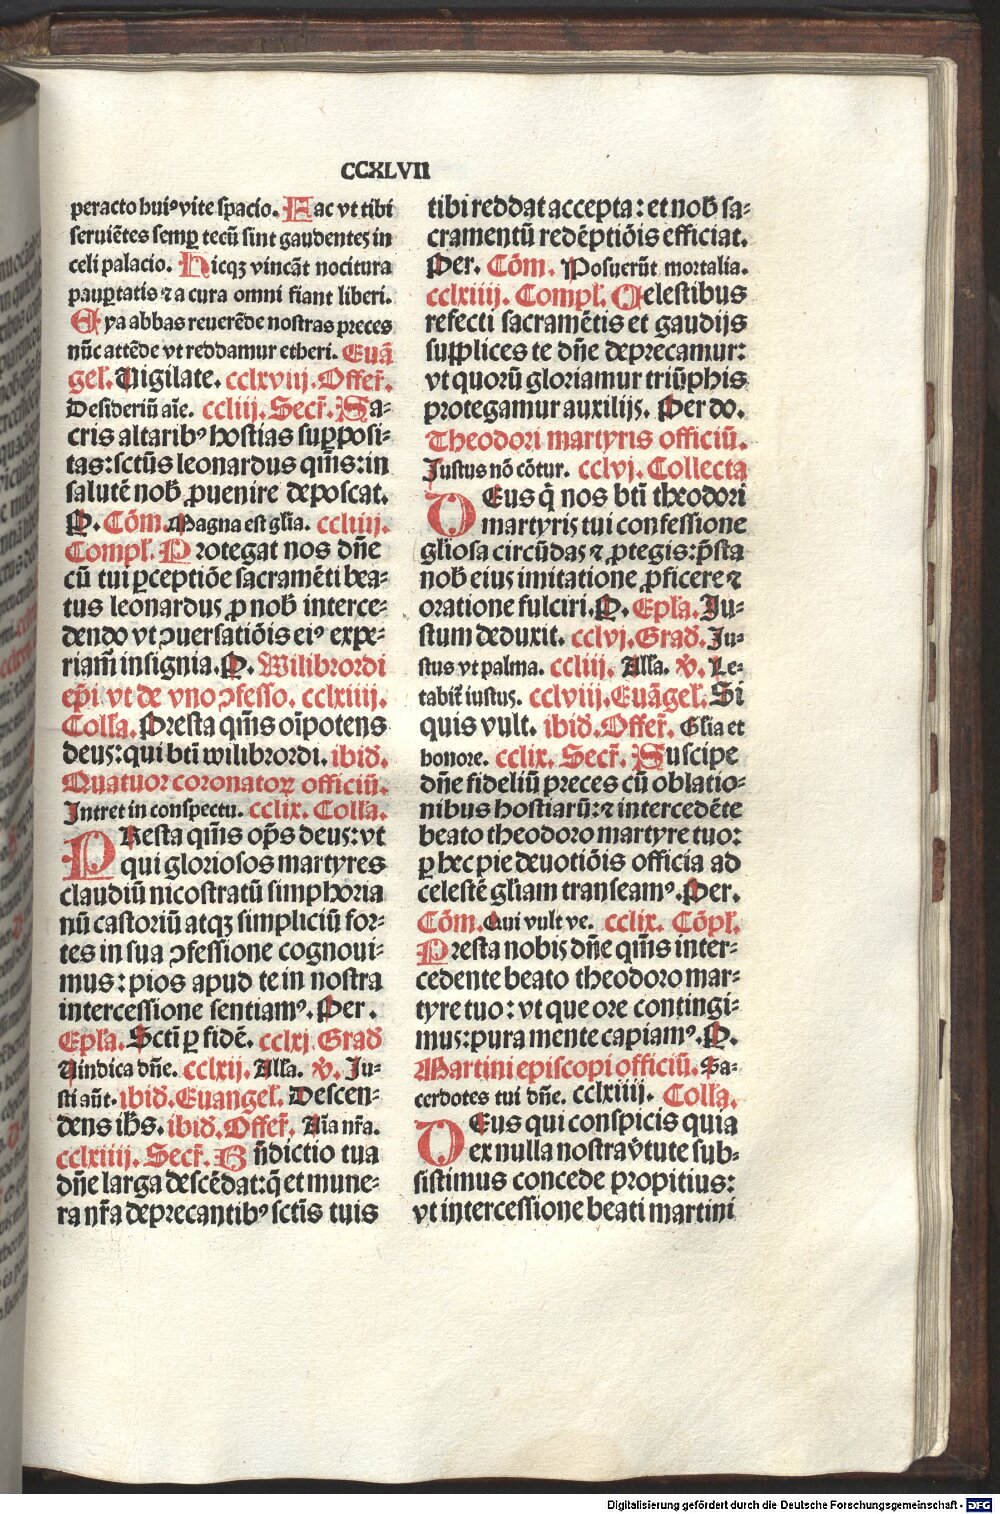 CCXLVII
peracto huiꝰ vite spacio. Fac vt tibi
seruiētes semꝑ tecū sint gaudentes in
celi palacio. Hicqꝫ vincāt nocitura
pauꝑtatis ⁊ a cura omni fiant liberi.
Eya abbas reuerēde nostras preces
nūc attēde vt reddamur etheri. Euā
gel̄. Vigilate. cclxviij. Offer̄.
Desideriū aīe. ccliij. Secr̄. Sa-
cris altaribꝰ hostias suꝑposi-
tas: sctūs leonardus qm̄s: in
salutē nob̄ ꝓuenire deposcat.
P. Cōm. Magna est gl̄ia. ccliiij.
Compl̄. Protegat nos dn̄e
cū tui ꝑceptiōe sacramēti bea-
tus leonardus ꝓ nob̄ interce-
dendo vt ꝯuersatiōis eiꝰ expe-
riam̄ insignia. P. Wilibrordi
ep̄i vt de vno ꝯfesso. cclxiiij.
Coll̄a. Presta qm̄s oīpotens
deus: qui bt̄i wilibrordi. ibid̄.
Quatuor coronatoꝝ officiū.
Intret in conspectu. cclix. Coll̄a.
PResta qm̄s op̄s deus: vt
qui gloriosos martyres
claudiū nicostratū simphoria
nū castoriū atqꝫ simpliciū for-
tes in sua ꝯfessione cognoui-
mus: pios apud te in nostra
intercessione sentiamꝰ. Per.
Epl̄a. Scti ꝑ fidē. cclxj Grad̄
Vindica dn̄e. cclxij. All̄a. v̄. Ju-
sti aūt. ibid̄. Euangel̄. Descen-
dens ih̄s. ibid̄. Offer̄. Aīa nr̄a.
cclxiiij. Secr̄. Bn̄dictio tua
dn̄e larga descēdat: q̄ et mune-
ra nr̄a deprecantibꝰ sctīs tuis
tibi reddat accepta: et nob̄ sa-
cramentū redēptiōis efficiat.
Per. Cōm. Posuerūt mortalia.
cclxiiij. Compl̄. Celestibus
refecti sacramētis et gaudijs
supplices te dn̄e deprecamur:
vt quorū gloriamur triūphis
protegamur auxilijs. Per do.
Theodori martyris officiū.
Justus nō cōtur. cclvj. Collecta
DEus q̄ nos bt̄i theodori
martyris tui confessione
gl̄iosa circūdas ⁊ ꝓtegis: p̄sta
nob̄ eius imitatione ꝓficere ⁊
oratione fulciri. P. Epl̄a. Ju-
stum deduxit. cclvj. Grad̄. Ju-
stus vt palma. ccliij. All̄a. v̄. Le-
tabit̄ iustus. cclviij. Euāgel̄. Si
quis vult. ibid̄. Offer̄. Gl̄ia et
honore. cclix. Secr̄. Suscipe
dn̄e fideliū preces cū oblatio-
nibus hostiarū: ⁊ intercedēte
beato theodoro martyre tuo:
ꝑ hec pie deuotiōis officia ad
celestē gl̄iam transeamꝰ. Per.
Cōm. Qui vult ve. cclix. Cōpl̄.
Presta nobis dn̄e qm̄s inter-
cedente beato theodoro mar-
tyre tuo: vt que ore contingi-
mus: pura mente capiamꝰ. P.
Martini episcopi officiū. Sa-
cerdotes tui dn̄e. cclxiiij. Coll̄a.
DEus qui conspicis quia
ex nulla nostra v̄tute sub-
sistimus concede propitius:
vt intercessione beati martini
Digitalisierung gefördert durch die Deutsche Forschungsgemeinschaft - DFG